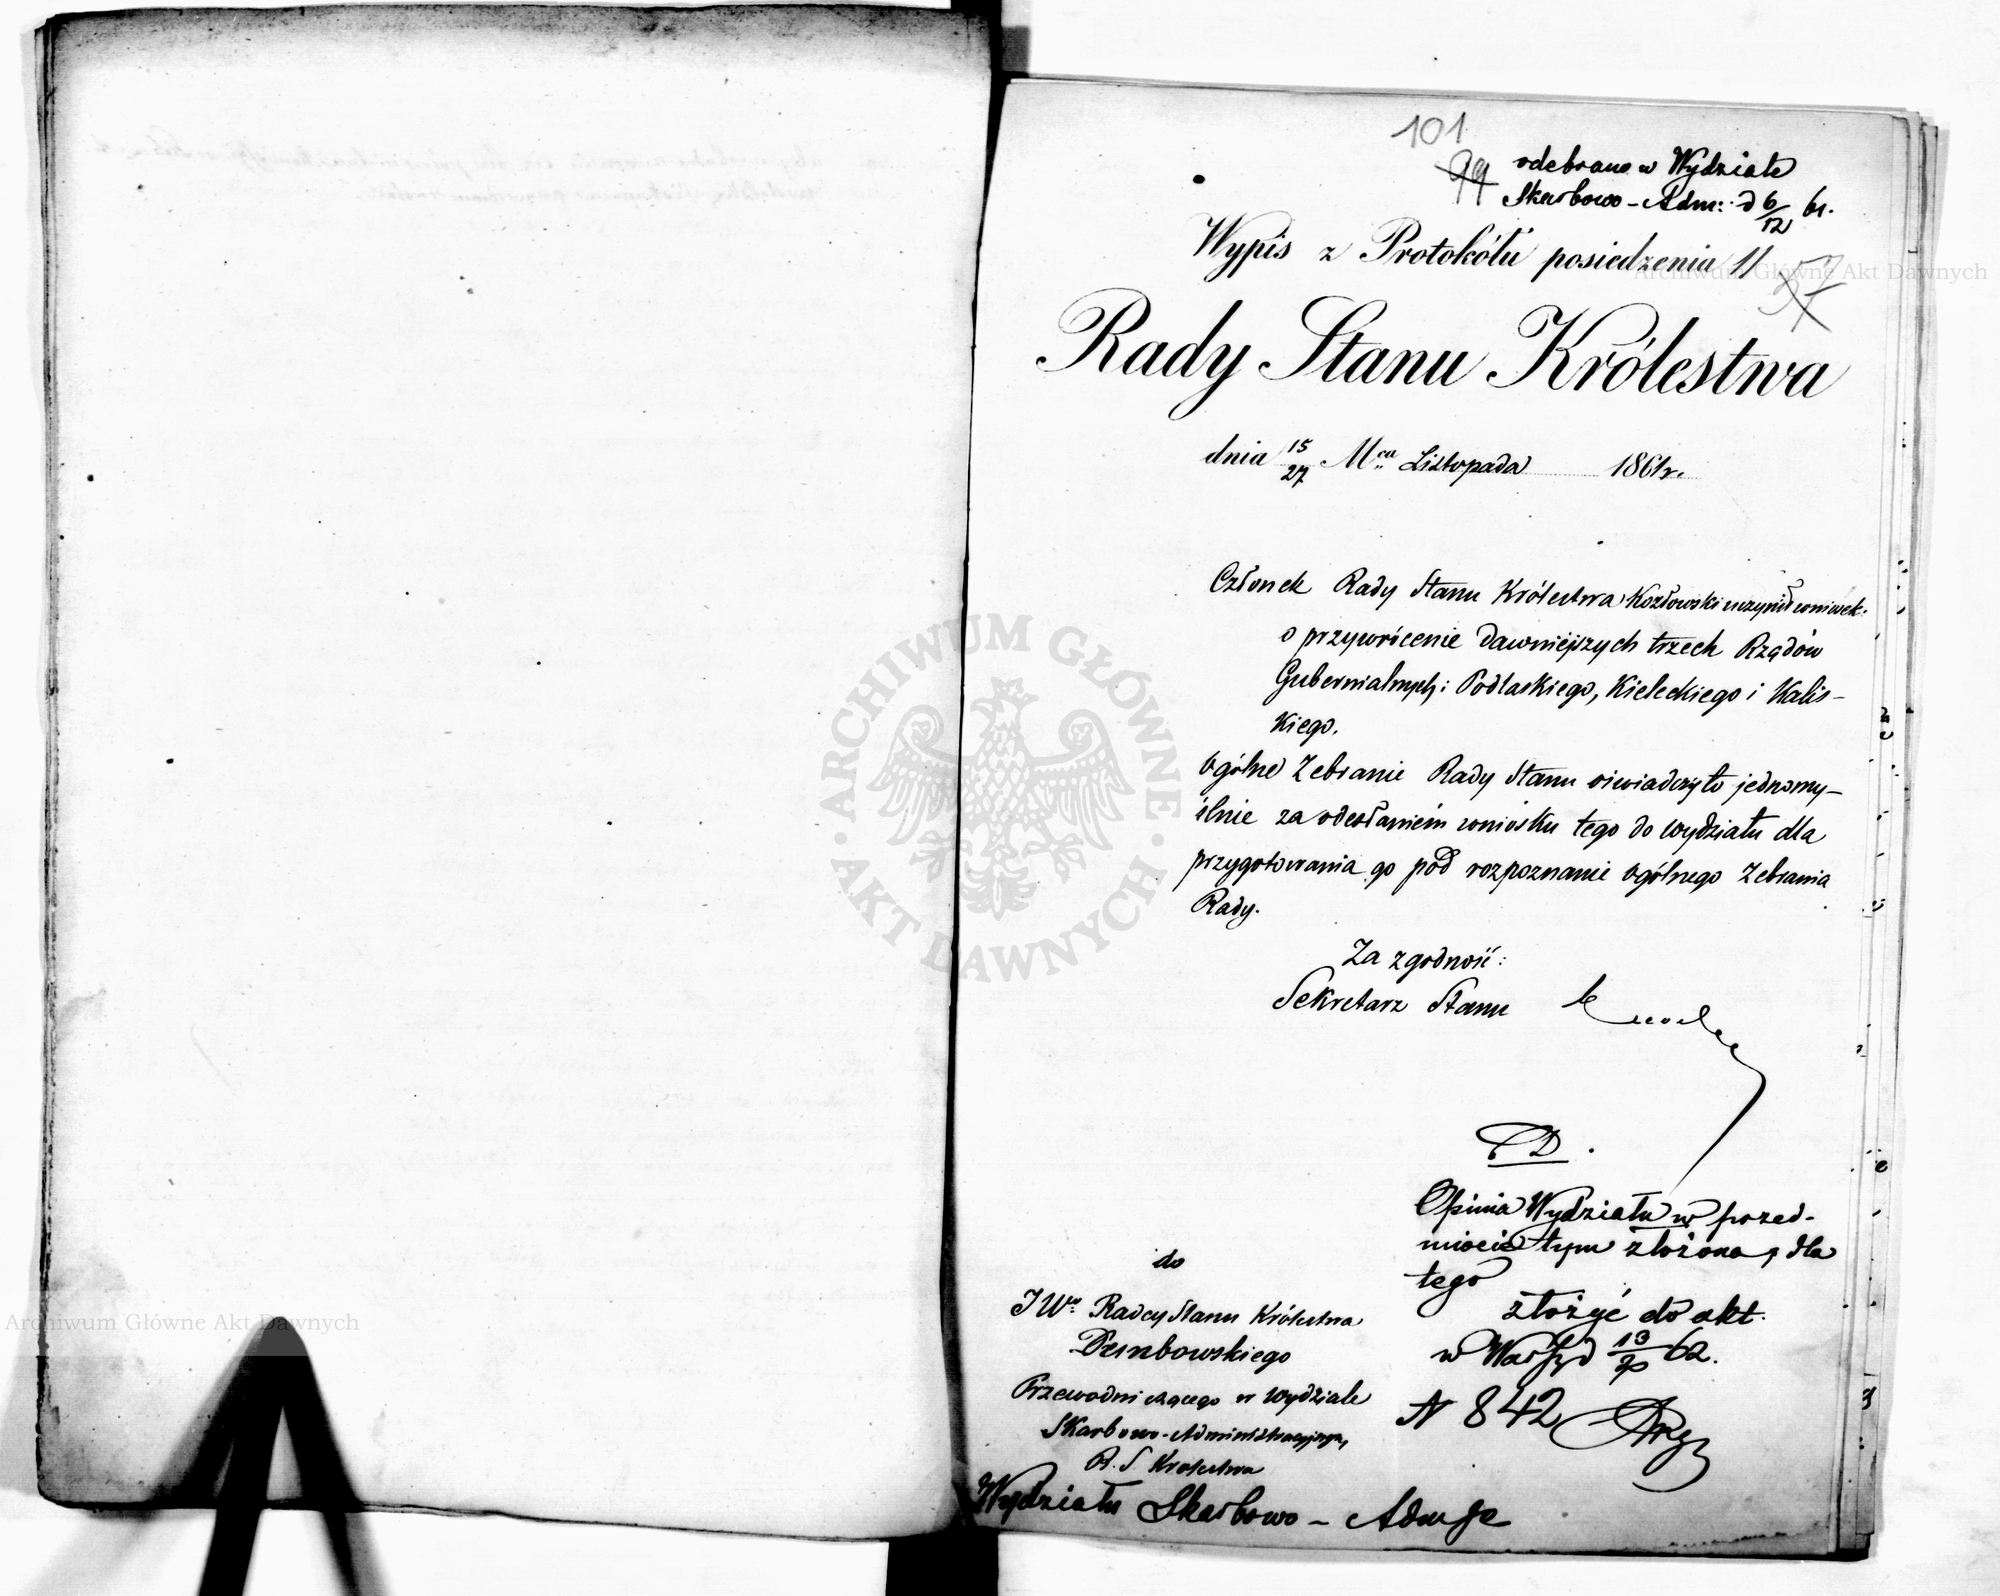 101
99
odebrano w Wydziale
Skarbowo-Adm: d 6/12 61.
Wypis z Protokółu posiedzenia 11
Rady Stanu Królestwa
dnia 15/27 Mca Listopada 1861 r.
Członek Rady Stanu Królestwa Kozłowski uczynił wniosek
o przywrócenie dawniejszych trzech Rządów
Gubernialnych: Podlaskiego, Kieleckiego i Kalis-
kiego.
Ogólne Zebranie Rady Stanu oświadczyło jednomy-
ślnie za odesłaniem wniosku tego do wydziału dla
przygotowania go pod rozpoznanie Ogólnego Zebrania
Rady.
Za zgodność:
Sekretarz Stanu
D.
Opinia Wydziału w przed-
miocie tym złożona, dla
tego
złożyć do akt.
w Warsz d 62.
N 842
do
JWo Radcy Stanu Królestwa
Dembowskiego
Przewodniczącego w Wydziale
Skarbowo-Administracyjnym,
R. S. Królestwa
Wydziału Skarbowo-Admge
Archiwum Główne Akt Dawnych
Archiwum Główne Akt Dawnych
ARCHIWUM GŁÓWNE · AKT DAWNYCH ·